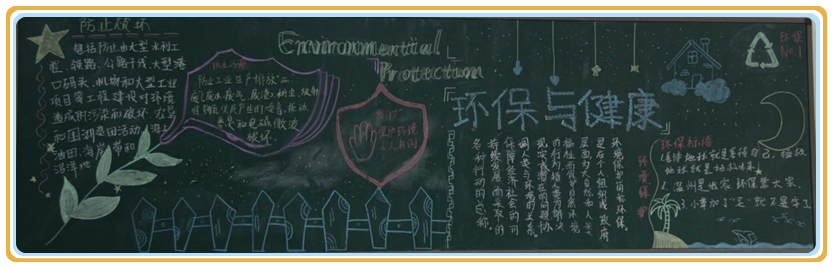 防止破坏
包括防止由大型水利工
程、铁路、公路干线、大型港
口码头、机场和大型工业
项目等工程建设对环境
造成的污染和破坏、农垦
和围湖垦田活动、海上
油田、海岸带和
沼泽地
防止工业生产排放"三
废"
粉尘、放射
产生的噪音、振动、
电磁微波
Environmential
Protection
保护环境
人人有责
环保与健康
环境保护简称环保,
是由个人组织或政府
层面为大自然和人类
福祉而保护自然环境
的行为。指人类为解决
现实或潜在的问题,协
调人类与环境的关系,
保障经济社会的可
持续发展而采取的
各种行动的总称。
环保
No.1
环保标语
1.善待地球就是善待自己,拯救
地球就是拯救未来。
2.温州是我家 环保靠大家。